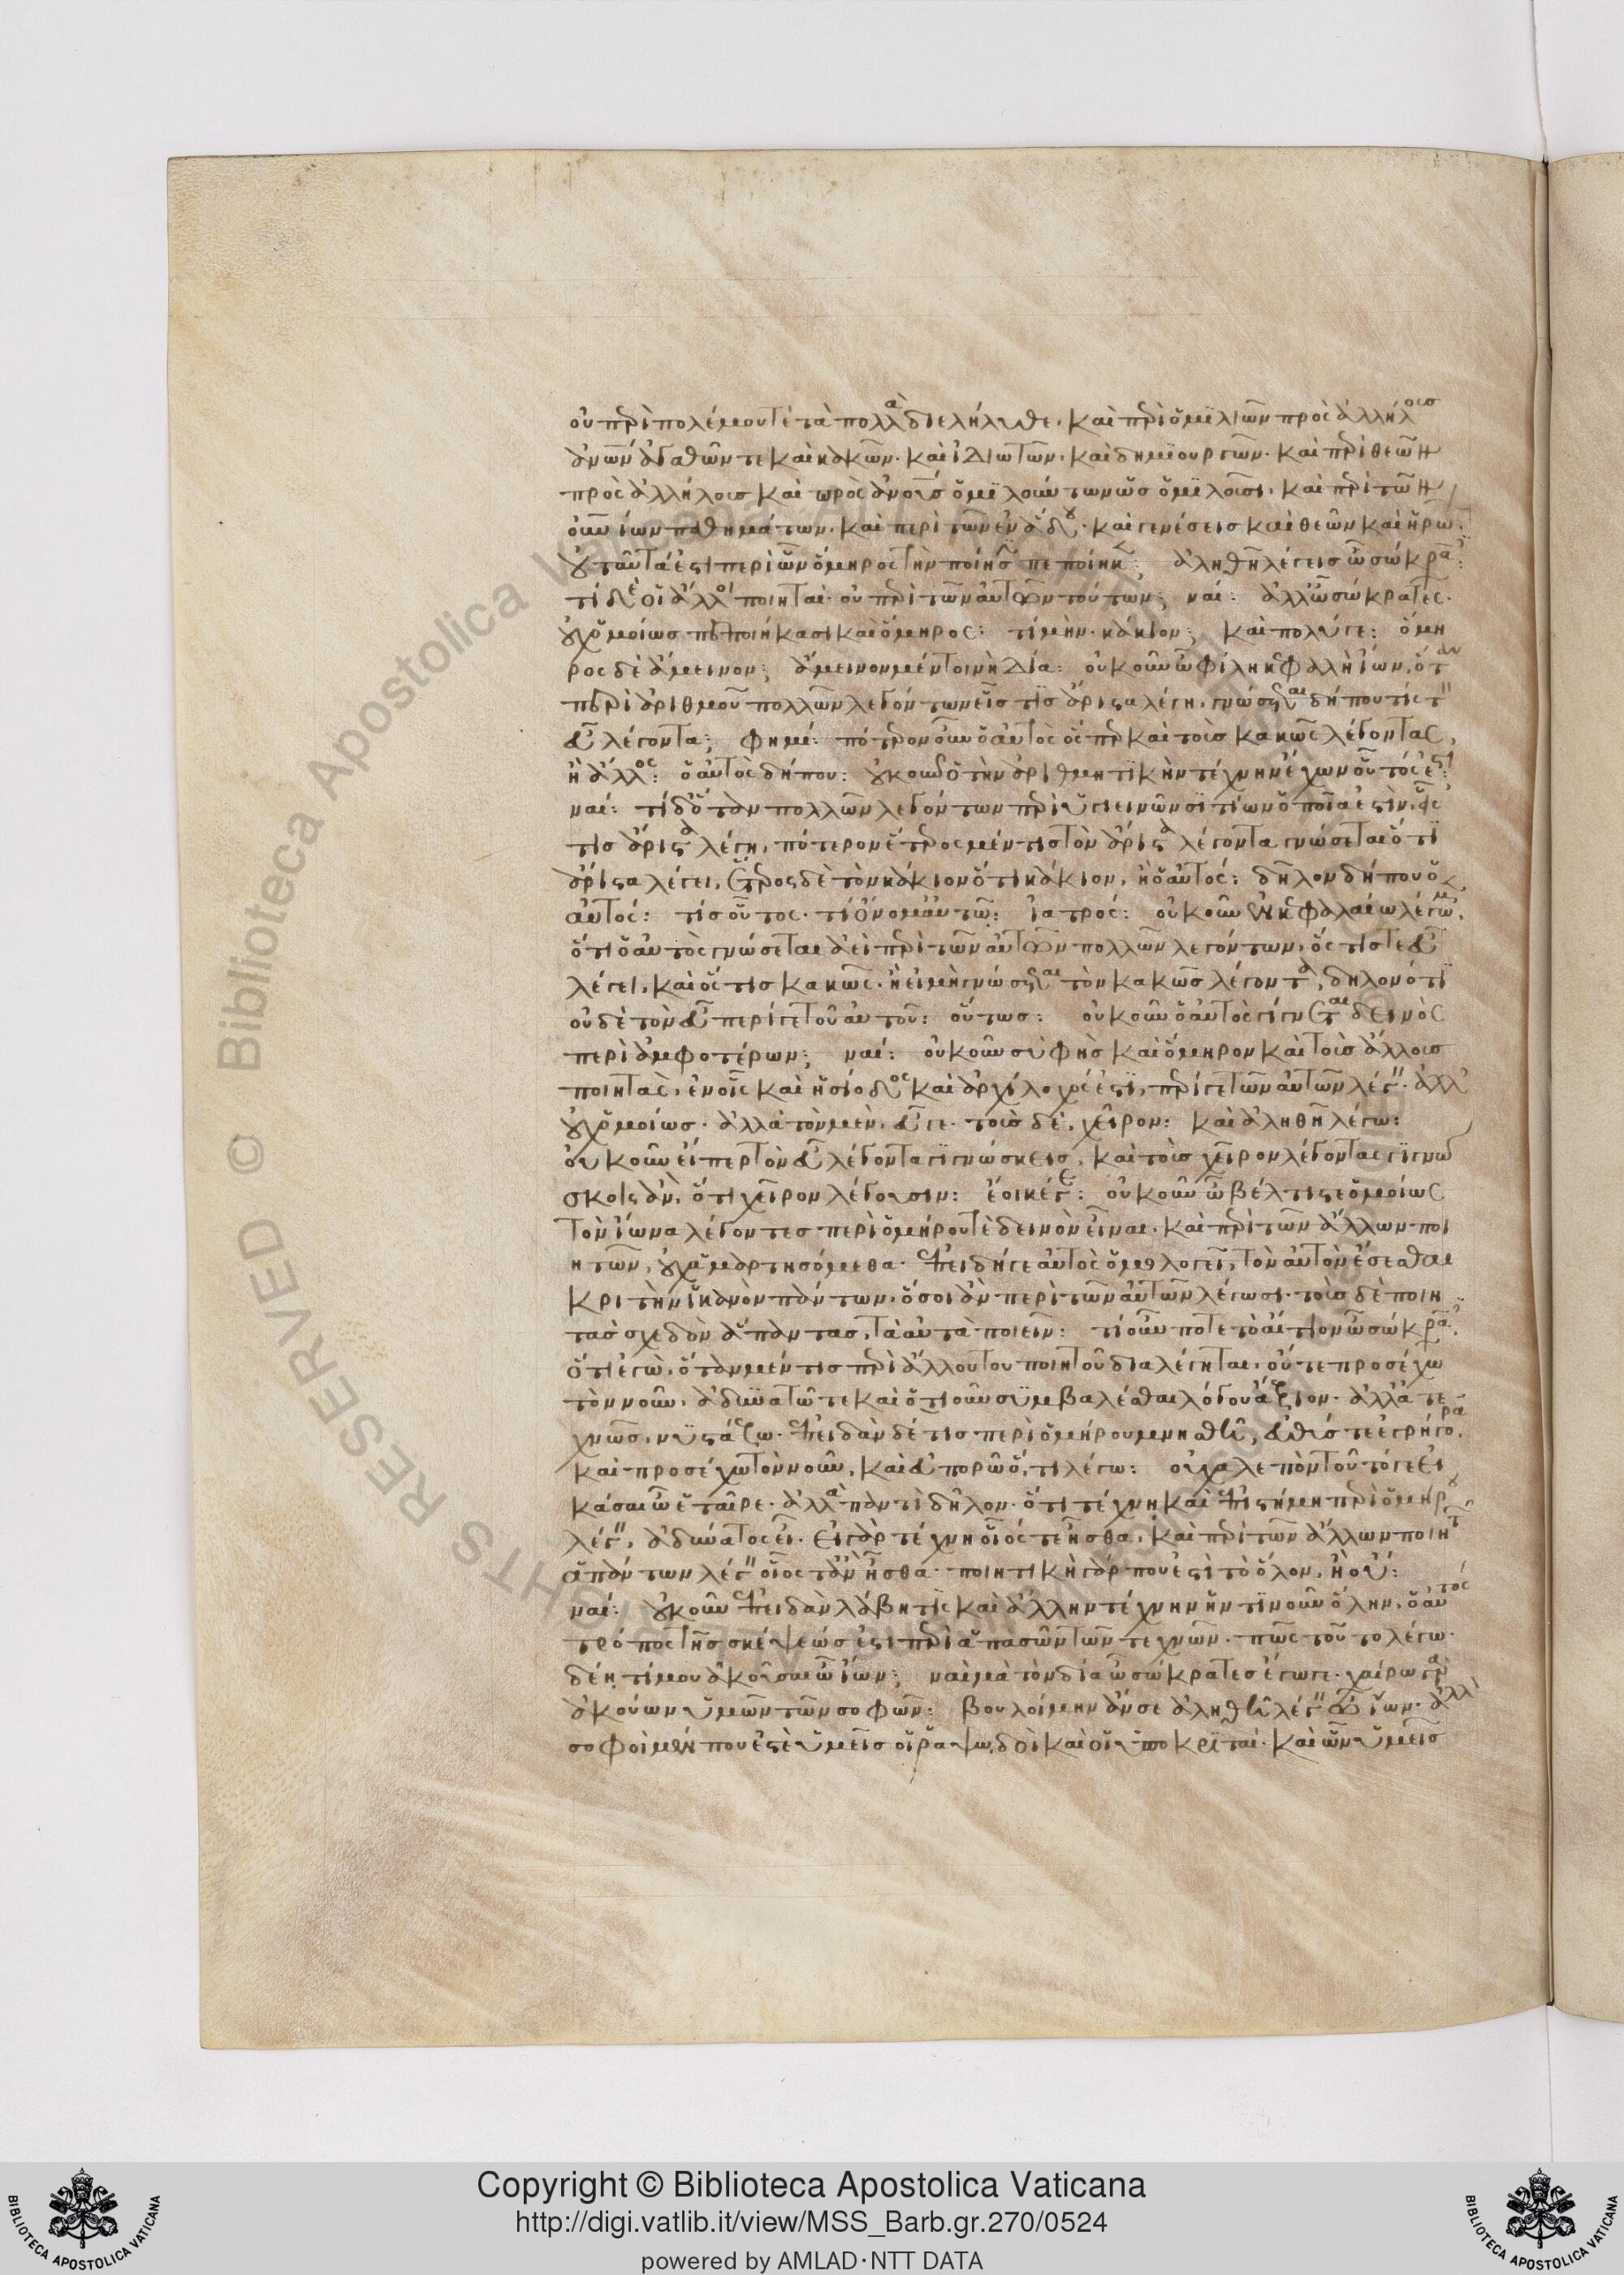 οὐ περὶ πολέμου τὲ τὰ πολλὰ διελήλυθε· καὶ περὶ ὁμιλιῶν πρὸς ἀλλήλοις
ἀνων ἀγαθῶν τε καὶ κακῶν· καὶ ἰδιωτῶν· καὶ δημιουργῶν· καὶ περὶ θεῶν
πρὸς ἀλλήλοις καὶ πρὸς ἀνοις ὁμιλούντων ὡς ὁμιλοῦσι· καὶ περὶ τῶν
οὐνίων παθημάτων· καὶ περὶ τῶν ἐν ἅδου· καὶ γενέσεις καὶ θεῶν καὶ ἡρώων·
οὐ ταῦτά ἐστι περὶ ὧν ὅμηρος τὴν ποίησιν πεποίηκεν: ἀληθῆ λέγεις ὦ σώκρατες:
τί δὲ οἱ ἄλλοι ποιηταί· οὐ περὶ τῶν αὐτῶν τούτων; ναί: ἀλλ' ὦ σώκρατες·
οὐχ ὁμοίως πεποιήκασι καὶ ὅμηρος: τί μήν· κάκιον; καὶ πολύ γε: ὅμη
ρος δὲ ἄμεινον; ἄμεινον μέντοι νὴ Δία: οὐκοῦν ὦ φίλη κεφαλὴ ἴων, ὅταν
περὶ ἀριθμοῦ πολλῶν λεγόντων εἷς τις ἄριστα λέγη, γνώσεται δήπου τίς τὸν
εὖ λέγοντα; φημί: πότερον οὖν ὁ αὐτὸς ὅσπερ καὶ τοὺς κακῶς λέγοντας,
ἢ ἄλλος: ὁ αὐτὸς δήπου: οὐκοῦν ὁ τὴν ἀριθμητικὴν τέχνην ἔχων οὗτός ἐστι:
ναί: τί δ' ὅταν πολλῶν λεγόντων περὶ ὑγιεινῶν σιτίων ὁποῖα ἐστὶν, εἷς
τις ἄριστα λέγη, πότερον ἕτερος μέν τις τὸν ἄριστα λέγοντα γνώσεται ὅτι
ἄριστα λέγει, ἕτερος δὲ τὸν κάκιον ὅτι κάκιον, ἢ ὁ αὐτός: δῆλον δήπου ὁ
αὐτός: τίς οὗτος· τί ὄνομα αὐτῷ: ἰατρός: οὐκοῦν ἐν κεφαλαίω λέγωμεν,
ὅτι ὁ αὐτὸς γνώσεται ἀεὶ περὶ τῶν αὐτῶν πολλῶν λεγόντων, ὅς τις τε εὖ
λέγει, καὶ ὅς τις κακῶς· ἢ εἰ μὴ γνώσεται τὸν κακῶς λέγοντα, δῆλον ὅτι
οὐδὲ τὸν εὖ περί γε τοῦ αὐτοῦ: οὕτως: οὐκοῦν ὁ αὐτὸς γίγνεται δεινὸς
περὶ ἀμφοτέρων; ναί: οὐκοῦν σὺ φῂς καὶ ὅμηρον καὶ τοὺς ἄλλους
ποιητὰς, ἐν οἷς καὶ ἡσίοδος καὶ ἀρχίλοχός ἐστι, περί γε τῶν αὐτῶν λέγειν· ἀλλ'
οὐχ ὁμοίως· ἀλλὰ τὸν μὲν, εὖ γε· τοὺς δὲ, χεῖρον: καὶ ἀληθῆ λέγω:
οὐκοῦν εἴπερ τὸν εὖ λέγοντα γιγνώσκεις, καὶ τοὺς χεῖρον λέγοντας γιγνώ
σκοις ἂν, ὅτι χεῖρον λέγουσιν: ἔοικέ γε: οὐκοῦν ὦ βέλτιστε ὁμοίως
τὸν ἴωνα λέγοντες περὶ ὁμήρου τὲ δεινὸν εἶναι· καὶ περὶ τῶν ἄλλων ποι
ητῶν, οὐχ ἁμαρτησόμεθα· ἐπειδή γε αὐτὸς ὁμολογεῖ, τὸν αὐτὸν ἔσεσθαι
κριτὴν ἱκανὸν πάντων, ὅσοι ἂν περὶ τῶν αὐτῶν λέγωσι· τοὺς δὲ ποιη
τὰς σχεδὸν ἅπαντας, τὰ αὐτὰ ποιεῖν: τί οὖν ποτε τὸ αἴτιον ὦ σώκρατες,
ὅτι ἐγὼ, ὅταν μέν τις περὶ ἄλλου του ποιητοῦ διαλέγηται, οὔτε προσέχω
τὸν νοῦν, ἀδυνατῶ τε καὶ ὁτιοῦν συμβαλέσθαι λόγου ἄξιον· ἀλλ' ἀτε
χνῶς, νυστάζω· ἐπειδὰν δέ τις περὶ ὁμήρου μνησθῆ, εὐθύς τε ἐγρήγορα,
καὶ προσέχω τὸν νοῦν, καὶ εὐπορῶ ὅ,τι λέγω: οὐ χαλεπὸν τοῦτό γε εἰ
κάσαι ὦ ἑταῖρε· ἀλλὰ παντὶ δῆλον· ὅτι τέχνη καὶ ἐπιστήμη περὶ ὁμήρου
λέγειν, ἀδύνατος εἶ· εἰ γὰρ τέχνη οἷός τε ἦσθα, καὶ περὶ τῶν ἄλλων ποιητῶν
ἁπάντων λέγειν οἷός τ' ἂν ἦσθα· ποιητικὴ γάρ που ἐστὶ τὸ ὅλον, ἢ οὔ:
ναί: οὐκοῦν ἐπειδὰν λάβη τις καὶ ἄλλην τέχνην ἥν τινοῦν ὅλην, ὁ αὐτός
τρόπος τῆς σκέψεώς ἐστι περὶ ἁπασῶν τῶν τεχνῶν· πῶς τοῦτο λέγω·
δέη τί μου ἀκοῦσαι ὦ ἴων; ναὶ μὰ τὸν δία ὦ σώκρατες ἔγωγε· χαίρω γὰρ
ἀκούων ὑμῶν τῶν σοφῶν: βουλοίμην ἄν σε ἀληθῆ λέγειν ὦ ἴων· ἀλλὰ
σοφοὶ μέν που ἐστὲ ὑμεῖς οἱ ῥαψωδοὶ καὶ οἱ ὑποκριταί· καὶ ὧν ὑμεῖς
© Biblioteca Apostolica Vaticana
RIGHTS RESERVED
BIBLIOTECA APOSTOLICA VATICANA
Copyright © Biblioteca Apostolica Vaticana
http://digi.vatlib.it/view/MSS_Barb.gr.270/0524
powered by AMLAD·NTT DATA
BIBLIOTECA APOSTOLICA VATICANA